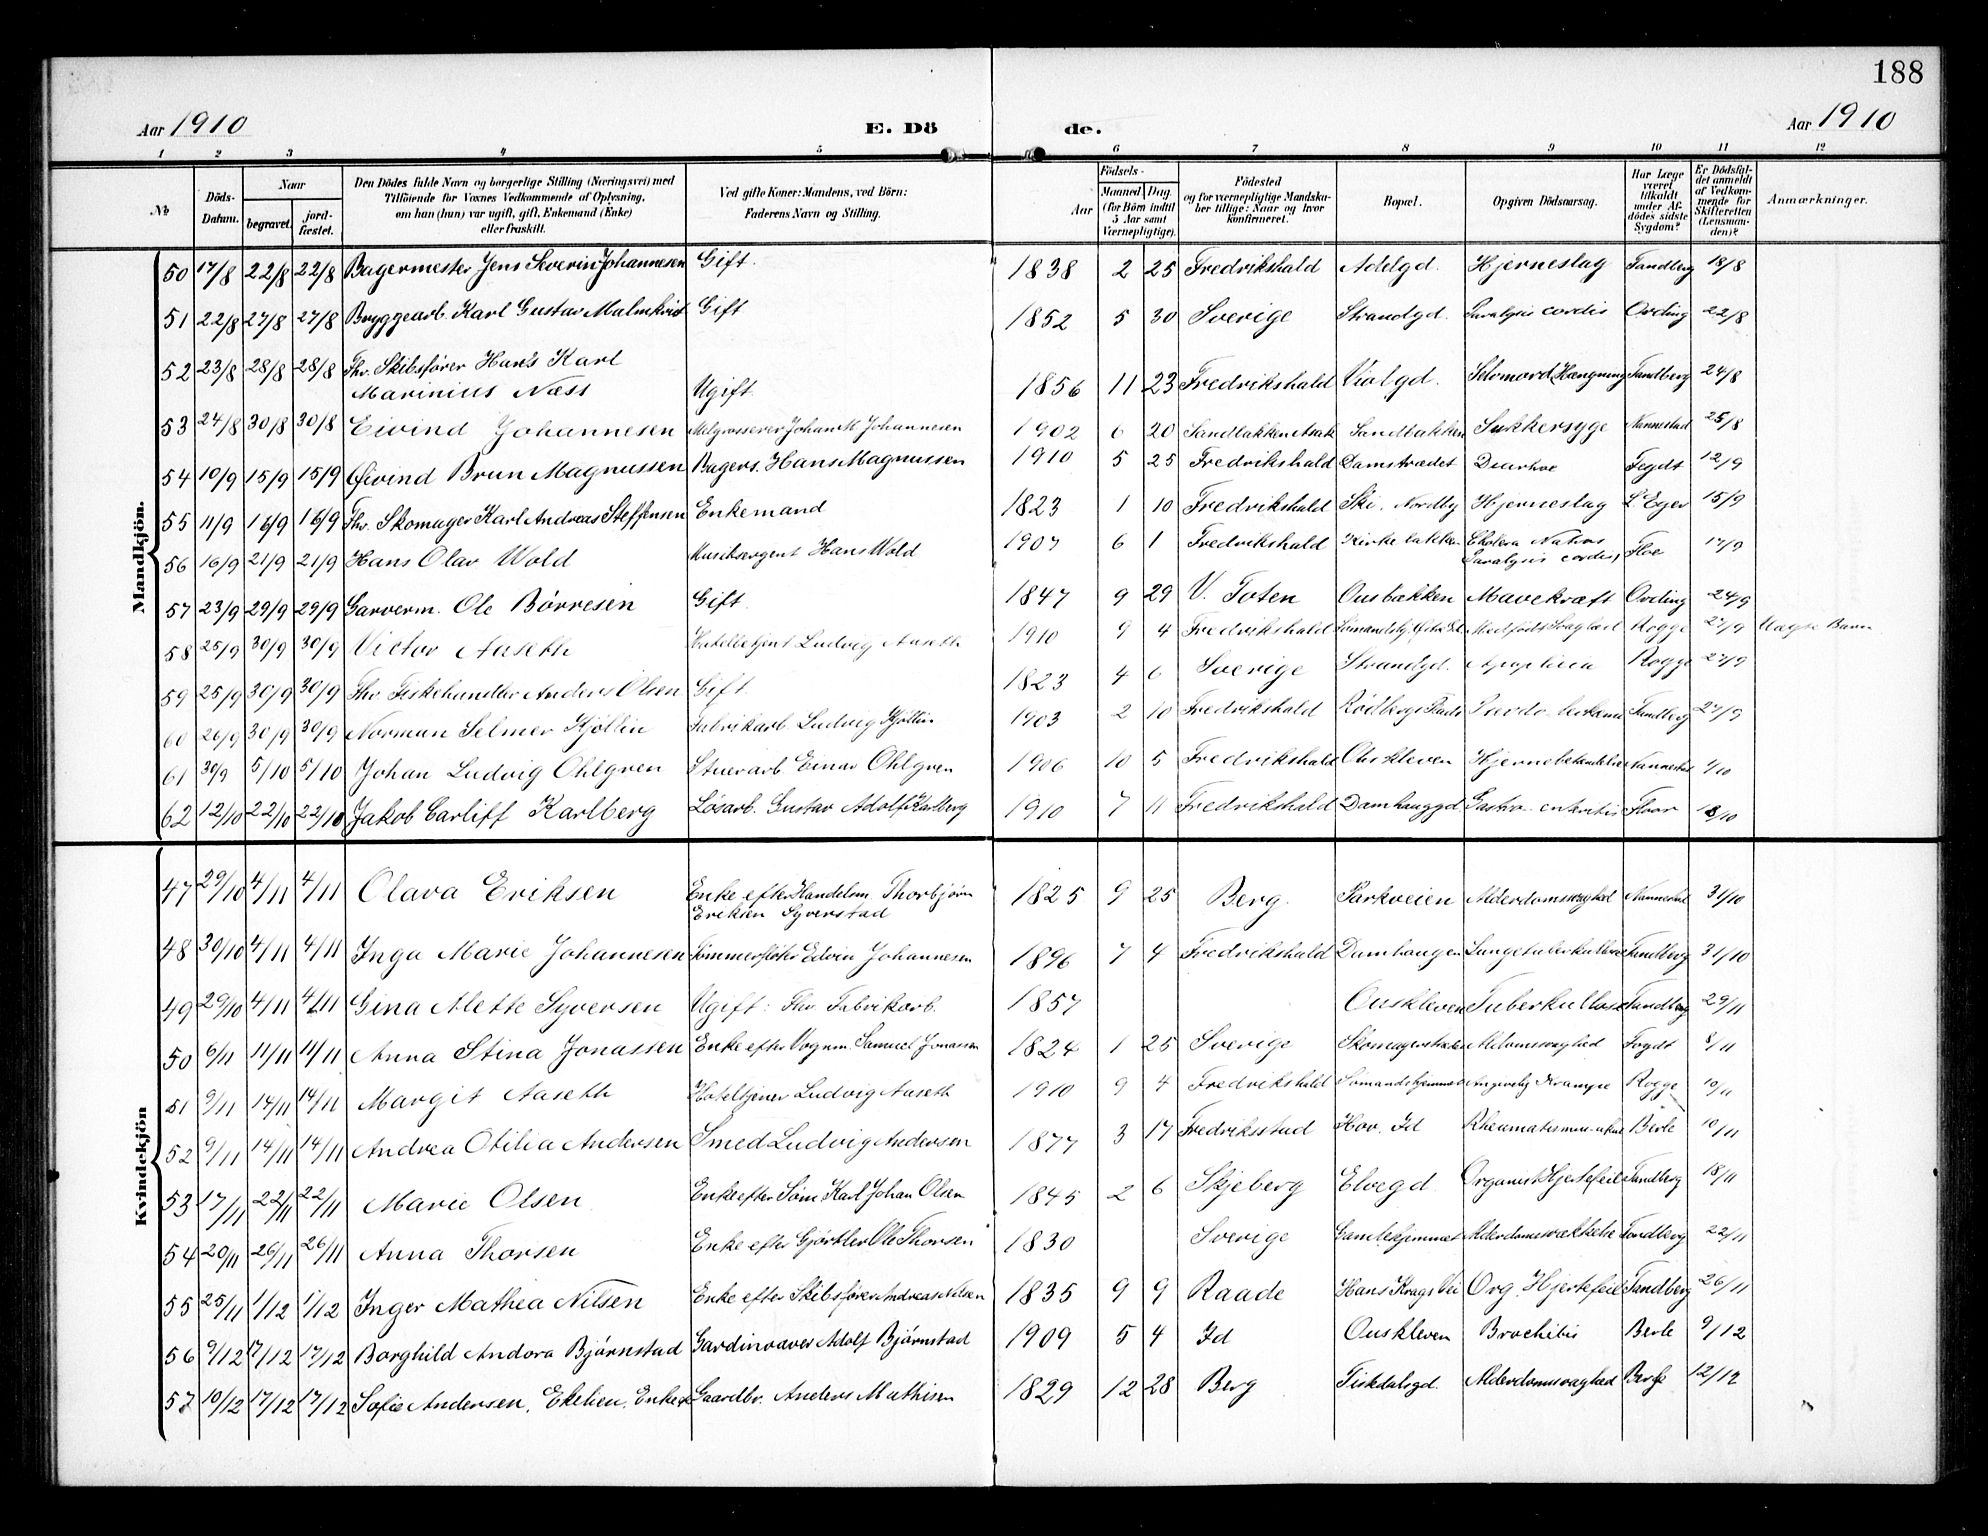 188
Aar 1910 E. Dö de. Aar 1910
1 2 3 4 5 6 7 8 9 10 11 12
No Döds-Datum. Naar begravet. jordfæstet. Den Dödes fulde Navn og borgerlige Stilling (Næringsvei) med Tilföiende for Voxnes Vedkommende af Oplysning, om han (hun) var ugift, gift, Enkemand (Enke) eller fraskilt. Ved gifte Koner: Mandens, ved Börn: Faderens Navn og Stilling. Aar Födsels- Maaned Dag. (for Börn indtil 5 Aar samt Værnepligtige). Födested og for værnepligtige Mandskaber tillige: Naar og hvor konfirmeret. Bopæl. Opgiven Dödsaarsag. Har Læge været tilkaldt under Afdödes sidste Sygdom? Er Dödsfaldet anmeldt af Vedkommende for Skifteretten (Lensmanden)? Anmærkninger.
Mandkjön.
50 17/8 22/8 22/8 Bagermester Jens Severin Johannesen Gift. 1838 2 25 Fredrikshald Adelgd. Hjerneslag Tandberg 18/8
51 22/8 27/8 27/8 Bryggearb. Karl Gustav Malmkvist Gift 1852 5 30 Sverige Strandgd. Paralysis cordis Ording 22/8
52 23/8 28/8 28/8 Fhv. Skibsfører Hans Karl
Marinius Næss Ugift 1856 11 23 Fredrikshald Violgd. Selvmord, Hængning Tandberg 24/8
53 24/8 30/8 30/8 Eivind Johannesen Melgrosserer Johan M Johannesen 1902 6 20 Sandbakken Asak Sandbakken Sukkersyge Nannestad 25/8
54 10/9 15/9 15/9 Øivind Brun Magnussen Bagers. Hans Magnussen 1910 5 25 Fredrikshald Damstrædet Diarhoe Fogdt 12/9
55 11/9 16/9 16/9 Fhv. Skomager Karl Andreas Steffensen Enkemand 1823 1 10 Fredrikshald Ski. Nordby Hjerneslag L. Eger 15/9
56 16/9 21/9 21/9 Hans Olav Wold Musiksergent Hans Wold 1907 6 1 Fredrikshald Kirkebakken Cholera Paralysis cordis 17/9
57 23/9 29/9 29/9 Garverm. Ole Børresen Gift 1847 9 29 V. Toten Ousbækken Mavekræft Ording 24/9
58 25/9 30/9 30/9 Victor Aaseth Hotelbetjent Ludvig Aaseth 1910 9 4 Fredrikshald Medfødt Svaghed Rogge 27/9 Uægte Barn
59 25/9 30/9 30/9 Fhv. Fiskehandler Anders Olsen Gift 1823 4 6 Sverige Strandgd. Apoplexia Rogge 27/9
60 26/9 30/9 30/9 Norman Selmer Kjøllin Fabrikarb. Ludvig Kjøllin 1903 2 10 Fredrikshald Tandberg 27/9
61 30/9 5/10 5/10 Johan Ludvig Ohlgren Stuerarb. Einar Ohlgren 1906 10 5 Fredrikshald Ouskleven Hjernebetændelse Nannestad 1/10
62 12/10 22/10 22/10 Jakob Carliff Karlberg Løsarb. Gustav Adolf Karlberg 1910 7 11 Fredrikshald Damhauggd. Gastro-enteritis 18/10
Kvindekjön
47 29/10 4/11 4/11 Olava Eriksen Enke efter Handelsm. Thorbjørn
Eriksen Syverstad 1825 9 25 Berg. Parkveien Alderdomssvaghed Nannestad 31/10
48 30/10 4/11 4/11 Inga Marie Johannesen Tømmerfløder Edvin Johannesen 1896 7 4 Fredrikshald Damhaugen Lungetuberkullose Tandberg 31/10
49 29/10 4/11 4/11 Gina Mette Syversen Ugift: Fhv. Fabrikarb. 1857 Ouskleven Tuberkullose Tandberg 29/11
50 6/11 11/11 11/11 Anna Stina Jonassen Enke efter Vognm. Samuel Jonassen 1824 1 25 Sverige Skomagerstrædet Alderdomssvaghed Fogdt 8/11
51 9/11 14/11 14/11 Margit Aaseth Hoteltjener Ludvig Aaseth 1910 9 4 Fredrikshald Sømandshjemmet Angivelig Krampe Rogge 10/11
52 9/11 14/11 14/11 Andrea Otilia Andersen Smed Ludvig Andersen 1877 3 17 Fredriksstad Hov. Id Berle 10/11
53 17/11 22/11 22/11 Marie Olsen Enke efter Søm. Karl Johan Olsen 1845 2 6 Skjeberg Elvegd Organisk Hjertefeil Tandberg 18/11
54 20/11 26/11 26/11 Anna Thorsen Enke efter Gjørtler Ole Thorsen 1830 Sverige Gamlehjemmet Alderdomssvækkelse Tandberg 22/11
55 25/11 1/12 1/12 Inger Mathea Nilsen Enke efter Skibsfører Andreas Nilsen 1835 9 9 Raade Hans Krags Vei Org. Hjertefeil Tandberg 26/11
56 9/12 17/12 17/12 Borghild Andora Bjørnstad Gardinvæver Adolf Bjørnstad 1909 5 4 Id Ouskleven Brochitis Berle 9/12
57 10/12 17/12 17/12 Sofie Andersen, Ekelien. Enke e. Gaardbr. Anders Mathisen 1829 12 28 Berg Fiskdalsgd. Alderdomssvaghed Berle 12/12